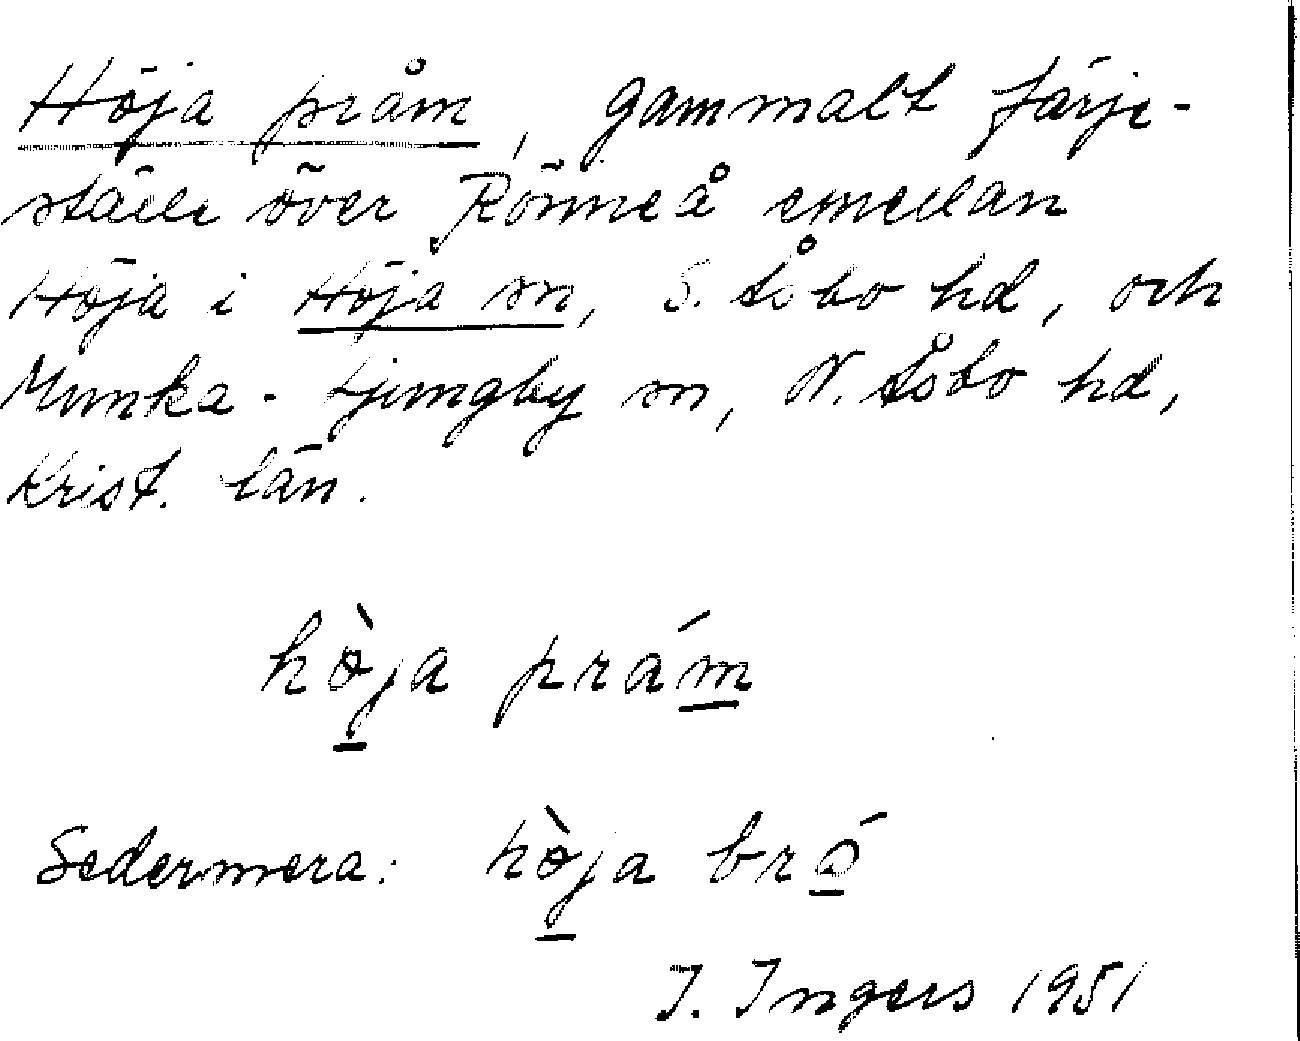 Höja pråm, gammalt färje-
ställe över Rönneå emellan
Höja i Höja sn, S. Åsbo hd, och
Munka-Ljungby sn, N. Åsbo hd,
Krist. län.
hö̀ja prám
Sedermera: hö̀ja bró
I. Ingers 1951